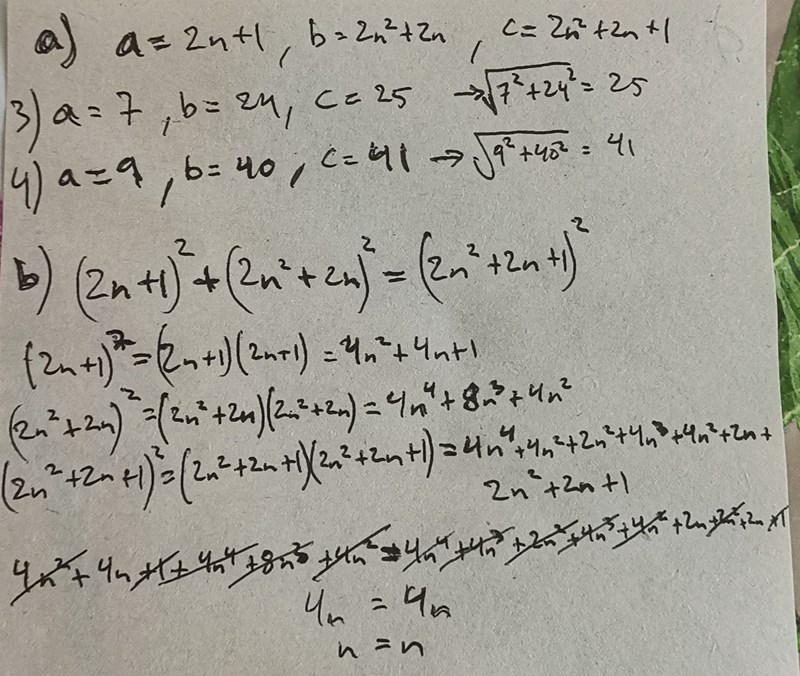 a) a = 2n+1, b = 2n²+2n, c = 2n²+2n+1
3) a = 7, b = 24, c = 25 → √7²+24² = 25
4) a = 9, b = 40, c = 41 → √9²+40² = 41
b) (2n+1)² + (2n²+2n)² = (2n²+2n+1)²
(2n+1)² = (2n+1)(2n+1) = 4n²+4n+1
(2n²+2n)² = (2n²+2n)(2n²+2n) = 4n⁴+8n³+4n²
(2n²+2n+1)² = (2n²+2n+1)(2n²+2n+1) = 4n⁴+4n²+2n²+4n³+4n²+2n+
2n²+2n+1
4n²+4n+1+4n⁴+8n³+4n² = 4n⁴+4n³+2n²+4n³+4n²+2n+2n²+2n+1
4n = 4n
n = n